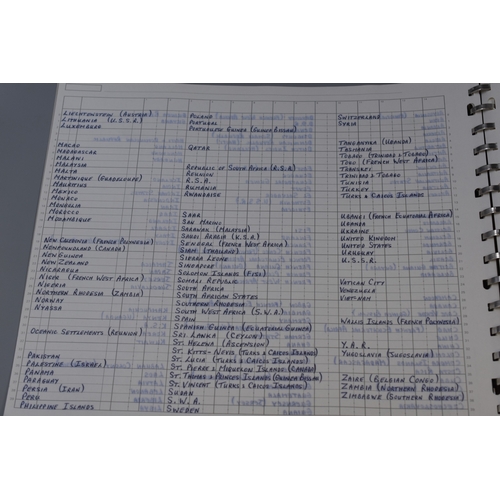 LIECHTENSTEIN (AUSTRIA)
LITHUANIA (U.S.S.R.)
LUXEMBURG
MACAO
MADAGASCAR
MALAWI
MALAYSIA
MALTA
MARTINIQUE (GUADALOUPE)
MAURITIUS
MEXICO
MONACO
MONGOLIA
MOROCCO
MOZAMBIQUE
NEW CALEDONIA (FRENCH POLYNESIA)
NEWFOUNDLAND (CANADA)
NEW GUINEA
NEW ZEALAND
NICARAGUA
NIGER (FRENCH WEST AFRICA)
NIGERIA
NORTHERN RHODESIA (ZAMBIA)
NORWAY
NYASSA
OCEANIC SETTLEMENTS (REUNION)
PAKISTAN
PALESTINE (ISRAEL)
PANAMA
PARAGUAY
PERSIA (IRAN)
PERU
PHILIPINE ISLANDS
POLAND
PORTUGAL
PORTUGUESE GUINEA (GUINEA BISSAU)
QATAR
REPUBLIC OF SOUTH AFRICA (R.S.A.)
REUNION
R.S.A.
RUMANIA
RWANDAISE
SAAR
SAN MARINO
SARAWAK (MALAYSIA)
SAUDI ARABIA (K.S.A.)
SENEGAL (FRENCH WEST AFRICA)
SIAM (THAILAND)
SIERRA LEONE
SINGAPORE
SOLOMON ISLANDS (FIJI)
SOMALI REPUBLIC
SOUTH AFRICA
SOUTH AFRICAN STATES
SOUTHERN RHODESIA
SOUTH WEST AFRICA (S.W.A.)
SPAIN
SPANISH GUINEA (EQUATORIAL GUINEA)
SRI LANKA (CEYLON)
ST. HELENA (ASCENSION)
ST. KITTS-NEVIS (TURKS & CAICOS ISLANDS)
ST. LUCIA (TURKS & CAICOS ISLANDS)
ST. PIERRE & MIQUELON ISLANDS (CANADA)
ST. THOMAS & PRINCES ISLANDS (GUINEA BISSAU)
ST. VINCENT (TURKS & CAICOS ISLANDS)
SUDAN
S.W.A.
SWEDEN
SWITZERLAND
SYRIA
TANGANYIKA (UGANDA)
TASMANIA
TOBAGO (TRINIDAD & TOBAGO)
TOGO (FRENCH WEST AFRICA)
TRANSKEI
TRINIDAD & TOBAGO
TUNISIA
TURKEY
TURKS & CAICOS ISLANDS
UBANGI (FRENCH EQUATORIAL AFRICA)
UGANDA
UKRAINE
UNITED KINGDOM
UNITED STATES
URUGUAY
U.S.S.R.
VATICAN CITY
VENEZUELA
VIET-NAM
WALLIS ISLANDS (FRENCH POLYNESIA)
Y.A.R.
YUGOSLAVIA (JUGOSLAVIA)
ZAIRE (BELGIAN CONGO)
ZAMBIA (NORTHERN RHODESIA)
ZIMBABWE (SOUTHERN RHODESIA)